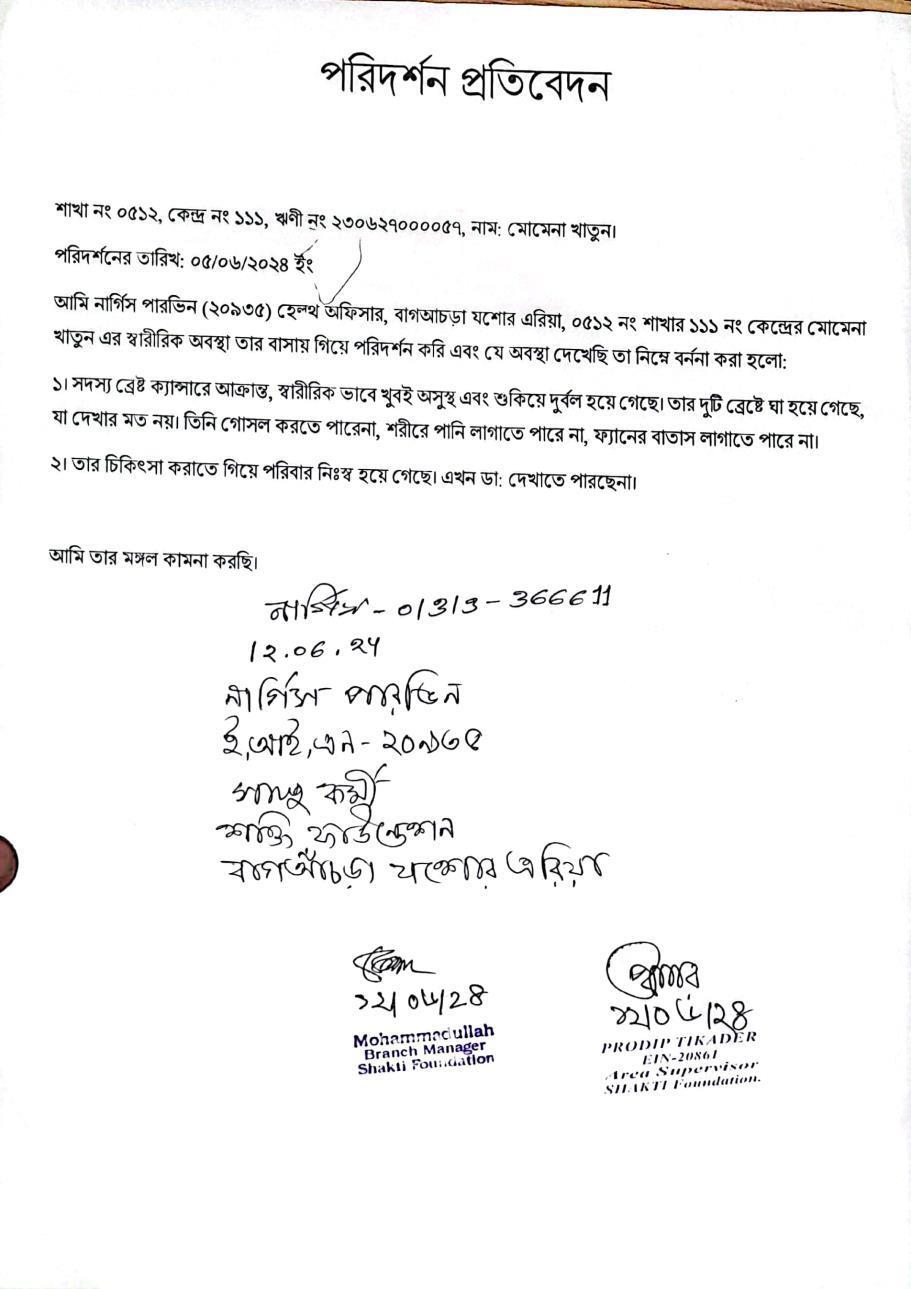 পরিদর্শন প্রতিবেদন
শাখা নং ০৫১২, কেন্দ্র নং ১১১, ঋণী নং ২৩০৬২৭০০০০৫৭, নাম: মোমেনা খাতুন।
পরিদর্শনের তারিখ: ০৫/০৬/২০২৪ ইং
আমি নার্গিস পারভিন (২০৯৩৫) হেলথ অফিসার, বাগআচড়া যশোর এরিয়া, ০৫১২ নং শাখার ১১১ নং কেন্দ্রের মোমেনা
খাতুন এর স্বারীরিক অবস্থা তার বাসায় গিয়ে পরিদর্শন করি এবং যে অবস্থা দেখেছি তা নিম্নে বর্ননা করা হলো:
১। সদস্য ব্রেষ্ট ক্যান্সারে আক্রান্ত, স্বারীরিক ভাবে খুবই অসুস্থ এবং শুকিয়ে দুর্বল হয়ে গেছে। তার দুটি ব্রেষ্টে ঘা হয়ে গেছে,
যা দেখার মত নয়। তিনি গোসল করতে পারেনা, শরীরে পানি লাগাতে পারে না, ফ্যানের বাতাস লাগাতে পারে না।
২। তার চিকিৎসা করাতে গিয়ে পরিবার নিঃস্ব হয়ে গেছে। এখন ডা: দেখাতে পারছেনা।
আমি তার মঙ্গল কামনা করছি।
নার্গিস - 01313-366611
12.06.২৪
নার্গিস পারভিন
ই,আই,এন- ২০৯৩৫
কর্মী
শক্তি ফাউন্ডেশন
বাগআঁচড়া যশোর এরিয়া
১২/০৬/২৪ ১২/০৬/২৪
Mohammadullah
Branch Manager
Shakti Foundation
PRODIP TIKADER
EIN-20861
Area Supervisor
SHAKTI Foundation.